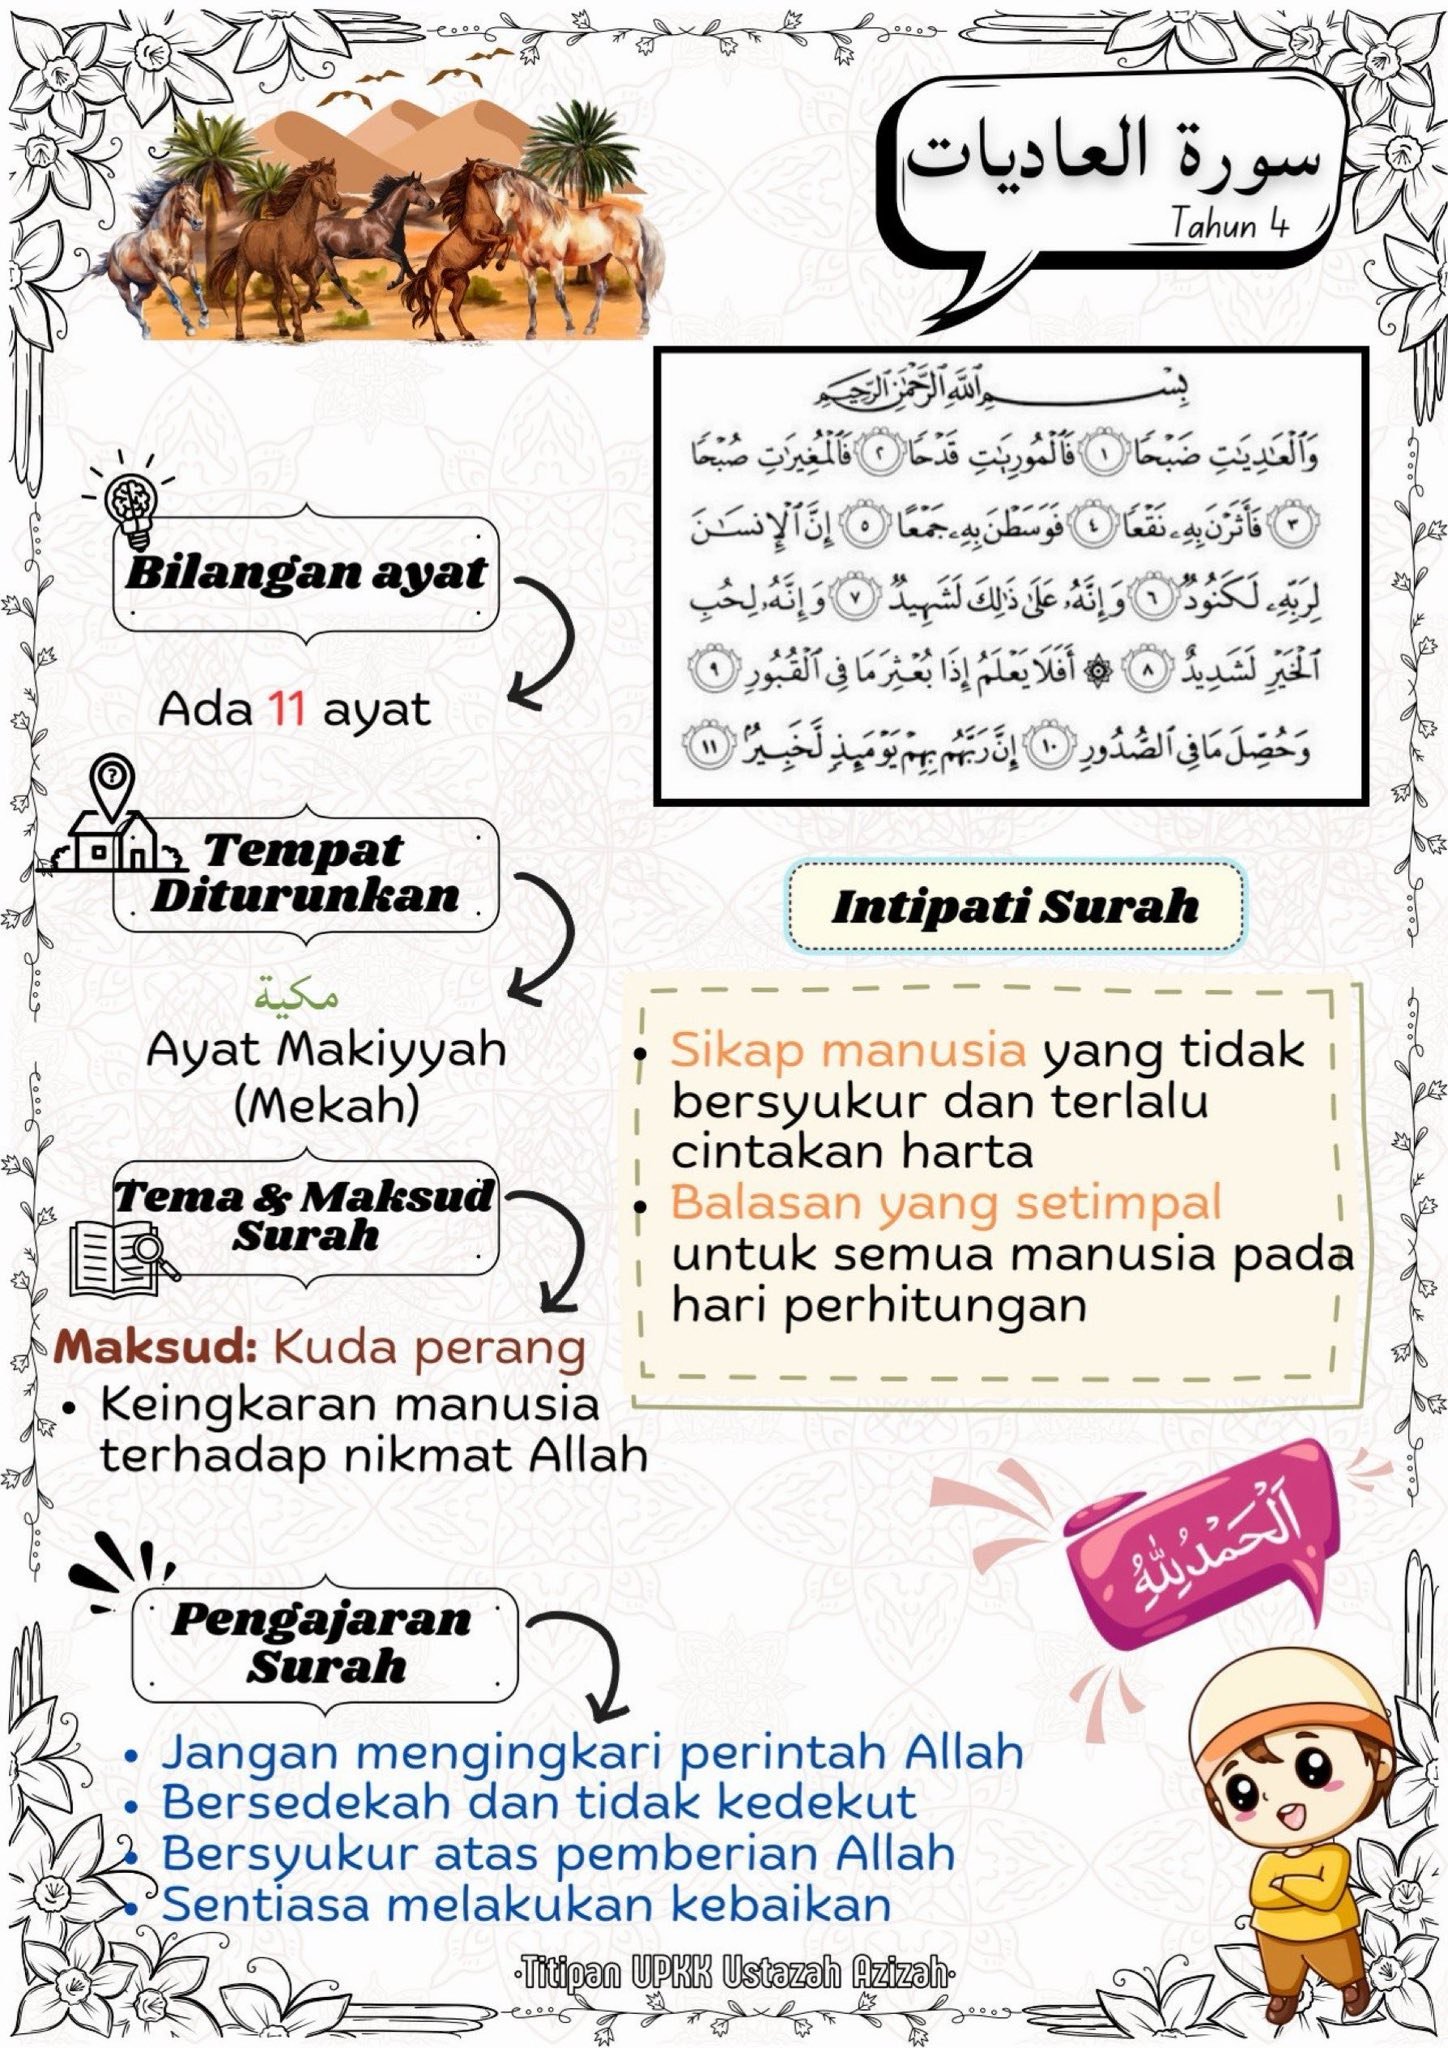 سورة العاديات
Tahun 4
بِسْمِ ٱللَّهِ ٱلرَّحْمَٰنِ ٱلرَّحِيمِ
وَٱلْعَٰدِيَٰتِ ضَبْحًا ١ فَٱلْمُورِيَٰتِ قَدْحًا ٢ فَٱلْمُغِيرَٰتِ صُبْحًا
٣ فَأَثَرْنَ بِهِۦ نَقْعًا ٤ فَوَسَطْنَ بِهِۦ جَمْعًا ٥ إِنَّ ٱلْإِنسَٰنَ
لِرَبِّهِۦ لَكَنُودٌ ٦ وَإِنَّهُۥ عَلَىٰ ذَٰلِكَ لَشَهِيدٌ ٧ وَإِنَّهُۥ لِحُبِّ
ٱلْخَيْرِ لَشَدِيدٌ ٨ ۞ أَفَلَا يَعْلَمُ إِذَا بُعْثِرَ مَا فِى ٱلْقُبُورِ ٩
وَحُصِّلَ مَا فِى ٱلصُّدُورِ ١٠ إِنَّ رَبَّهُم بِهِمْ يَوْمَئِذٍ لَّخَبِيرٌۢ ١١
Bilangan ayat
Ada 11 ayat
?
Tempat
Diturunkan
مكية
Ayat Makiyyah
(Mekah)
Tema & Maksud
Surah
Maksud: Kuda perang
• Keingkaran manusia
terhadap nikmat Allah
Intipati Surah
• Sikap manusia yang tidak
bersyukur dan terlalu
cintakan harta
• Balasan yang setimpal
untuk semua manusia pada
hari perhitungan
اَلْحَمْدُلِلّٰهِ
Pengajaran
Surah
• Jangan mengingkari perintah Allah
• Bersedekah dan tidak kedekut
• Bersyukur atas pemberian Allah
• Sentiasa melakukan kebaikan
•Titipan UPKK Ustazah Azizah•